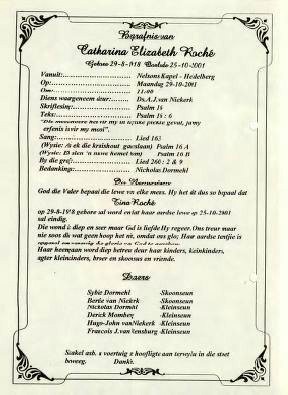 Begrafnis van
Catharina Elizabeth Roché
Gebore 29-8-1918 Oorlede 25-10-2001
Vanuit:.................. Nelsons Kapel - Heidelberg
Op:.................. Maandag 29-10-2001
Om:.................. 11:00
Diens waargeneem deur:......... Ds.A.J.van Niekerk
Skriflesing:.................. Psalm 16
Teks:.................. Psalm 16 : 6
vir my in lieflike plekke geval, ja my
erfenis is vir my mooi".
Sang:.................. Lied 163
(Wysie: As ek die kruishout gaan Psalm 16 A
(Wysie: Psalm 16 B
By die graf:.................. Lied 266 : 2 & 9
Bedankings:.................. Nicholas Dormehl
Die Memoriam
God die Vader bepaal die lewe van elke mens. Hy het dit dus so bepaal dat
Tina Roché
op 29-8-1918 gebore sal word en dat haar aardse lewe op 25-10-2001
sal eindig.
Die wond is diep en seer maar God se liefde Hy regeer. Ons treur maar
nie soos die wat geen hoop het nie, omdat ons glo; Haar aardse tentjie is
die glorie van God te
Haar heengaan word diep betreur deur haar kinders, kleinkinders,
agter kleinkinders, broer en skoonsus en vriende.
Draers
Sybie Dormehl -Skoonseun
Bertie van Niekerk -Skoonseun
Nicholas Dormehl -Kleinseun
Derick Momberg -Kleinseun
Hugo-John vanNiekerk -Kleinseun
Francois J.van Rensburg -Kleinseun
Skakel asb. u voertuig se hoofligte aan terwyl u in die stoet
beweeg. Dankie.